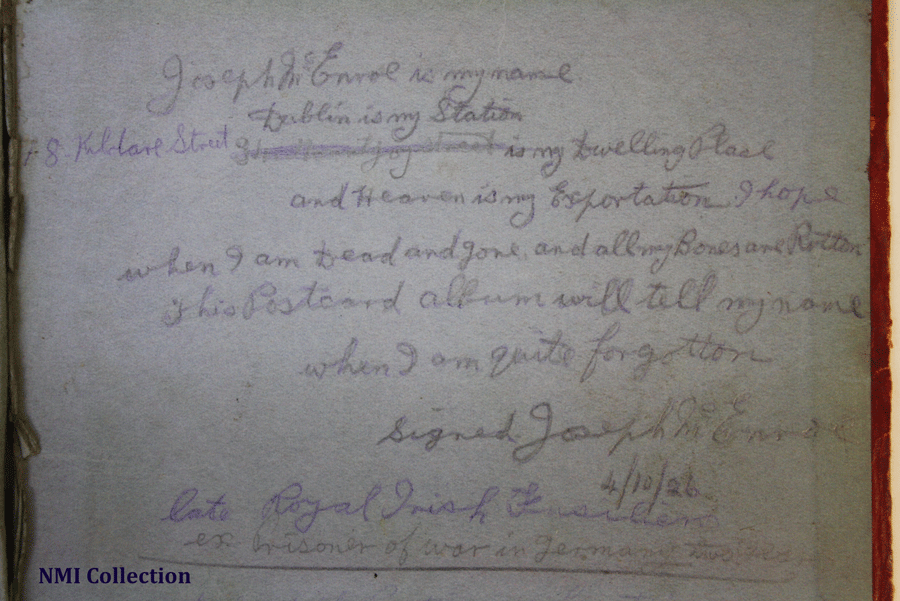 Joseph McEnroe is my name.
Dublin is my Station
48 Kildare Street is my Dwelling Place
and Heaven is my Exportation I hope
when I am Dead and gone, and all my Bones are Rotton
This Postcard album will tell my name
when I am quite forgotton
signed Joseph McEnroe
4/10/26
late Royal Irish Fusiliers
ex Prisoner of war in Germany
NMI Collection